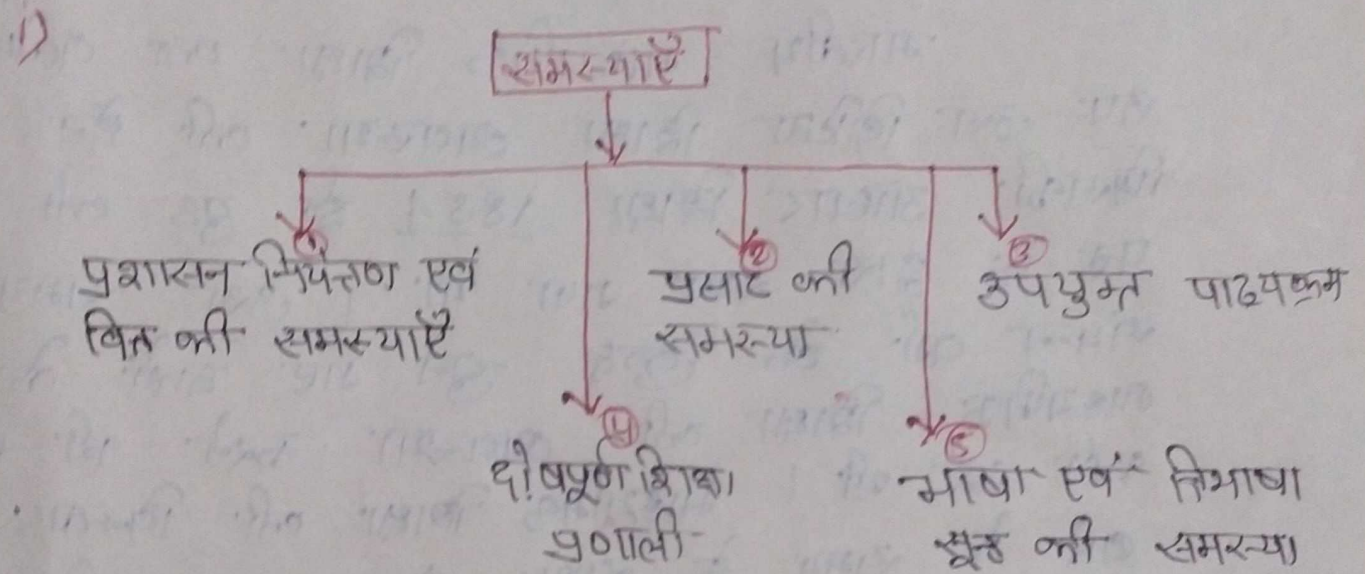 1)
समस्याएँ
① प्रशासन नियंत्रण एवं
वित्त की समस्याएँ
② प्रसार की
समस्या
③ उपयुक्त पाठ्यक्रम
④ दोषपूर्ण शिक्षा
प्रणाली
⑤ भाषा एवं त्रिभाषा
सूत्र की समस्या